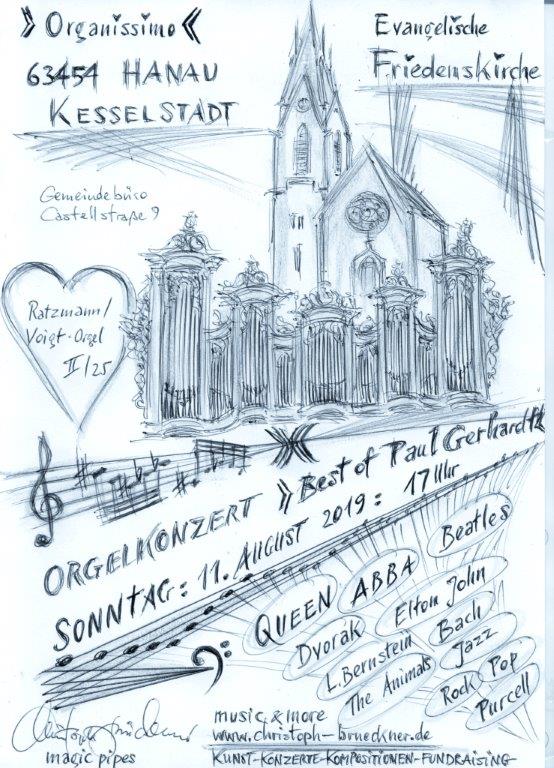 》Organissimo《
63454 HANAU
KESSELSTADT
Evangelische
Friedenskirche
Gemeindebüro
Castellstraße 9
Ratzmann/
Voigt-Orgel
II/25
ORGELKONZERT 》Best of Paul Gerhardt《
SONNTAG: 11. AUGUST 2019: 17 Uhr
Beatles
QUEEN
ABBA
Dvořák
Elton John
L. Bernstein
Bach
The Animals
Jazz
Rock
Pop
Purcell
magic pipes
music & more
www.christoph-brueckner.de
KUNST-KONZERTE-KOMPOSITIONEN-FUNDRAISING